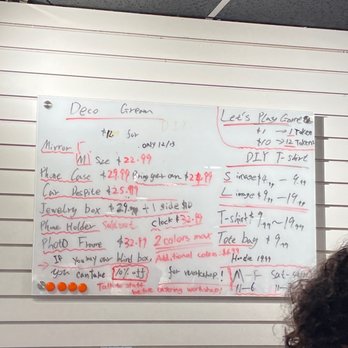 Deco Cream
$12 for
only 12/13
Mirror
M size $22.99
Phone Case $29.99
Car Despite $25.99
Jewelry box $29.99 + 1 side
Phone Holder Sold out Clock $32.99
Photo Frame $32.99 2 colors max
If you buy our blind box, Additional colors
You can take 10% off for workshop!
Talk to staff before entering workshop!
Let's Play Game
$1 → 1 Token
$10 → 12 Token
D.I.Y T-shirt
S image $
L image $
T-shirt $9.99 ~ 19.99
Tote bag $9.99
Hoodie 19.99
M-F Sat-
11-6